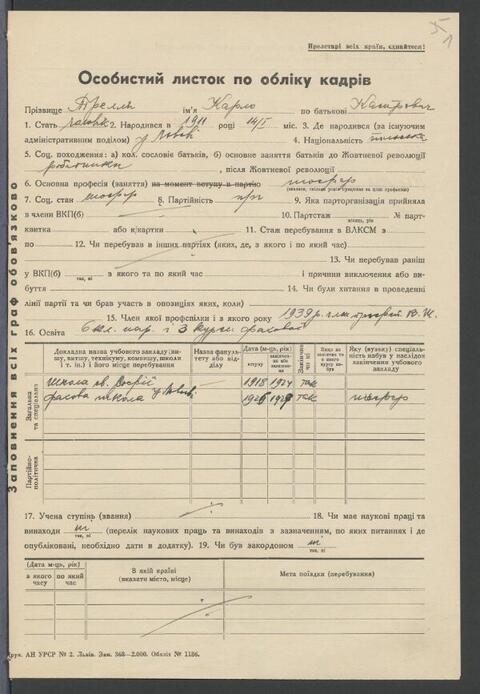 5
1
Пролетарі всіх країн, єднайтеся!
Особистий листок по обліку кадрів
Прізвище ім'я Карло по батькові
1. Стать 2. Народився в 1911 році 14/I міс. 3. Де народився (за існуючим
адміністративним поділом) 4. Національність
5. Соц. походження: а) кол. сословіє батьків, б) основне заняття батьків до Жовтневої революції
робітники, після Жовтневої революції
6. Основна професія (заняття) на момент вступу в партію шофер
7. Соц. стан шофер 8. Партійність 9. Яка парторганізація прийняла
в члени ВКП(б) 10. Партстаж місяць, рік № парт-
квитка або к/картки 11. Стаж перебування в ВЛКСМ з
по 12. Чи перебував в інших партіях (яких, де, з якого і по який час)
13. Чи перебував раніш
у ВКП(б) так, ні з якого та по який час і причини виключення або ви-
буття 14. Чи були хитання в проведенні
лінії партії та чи брав участь в опозиціях яких, коли)
15. Член якої профспілки і з якого року 1939 р.
16. Освіта 6 кл. нар. і 3 курси фахової
Докладна назва учбового закладу (ви-
шу, втишу, технікуму, комвишу, школи
і т. ін.) і його місце перебування
Назва факуль-
тету або від-
ділу
Дата (м-ць, рік)
вступу
закінчен-
ня або
вибуття
Закінчив
чи ні
Якщо не
закінчив то з
якого
курсу
вибув
Яку (вузьку) спеціаль-
ність набув у наслідок
закінчення учбового
закладу
Загальна
та спеціальна
Школа св. 1918 1924 так
фахова школа 1926 1929 так шофер
Партійно-
політична
17. Учена ступінь (звання) 18. Чи має наукові праці та
винаходи ні так, ні (перелік наукових праць та винаходів з зазначенням, по яких питаннях і де
опубліковані, необхідно дати в додатку). 19. Чи був закордоном ні так, ні
(Дата м-ць, рік)
з якого
часу
по який
час
В якій країні
(вказати місто, місце)
Мета поїздки (перебування)
Друк. АН УРСР № 2. Львів. Зам. 368—2.000. Обліт № 1186.
Заповнення всіх граф обов'язково